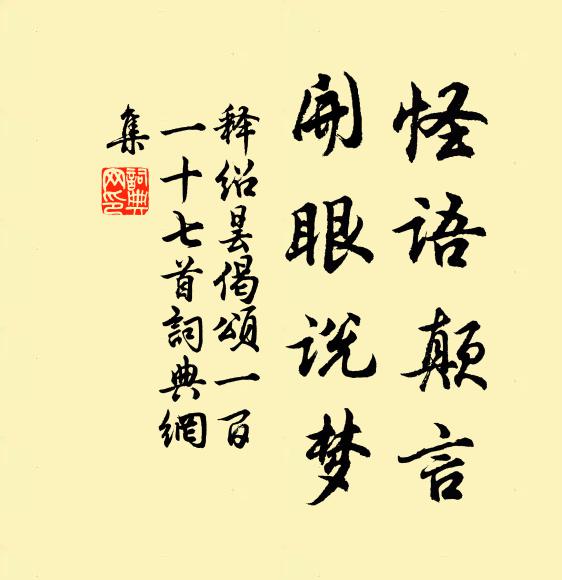 怪语颠言
開眼说梦
释绍昙偈頌一百
一十七首詞典網
集
詞典网印